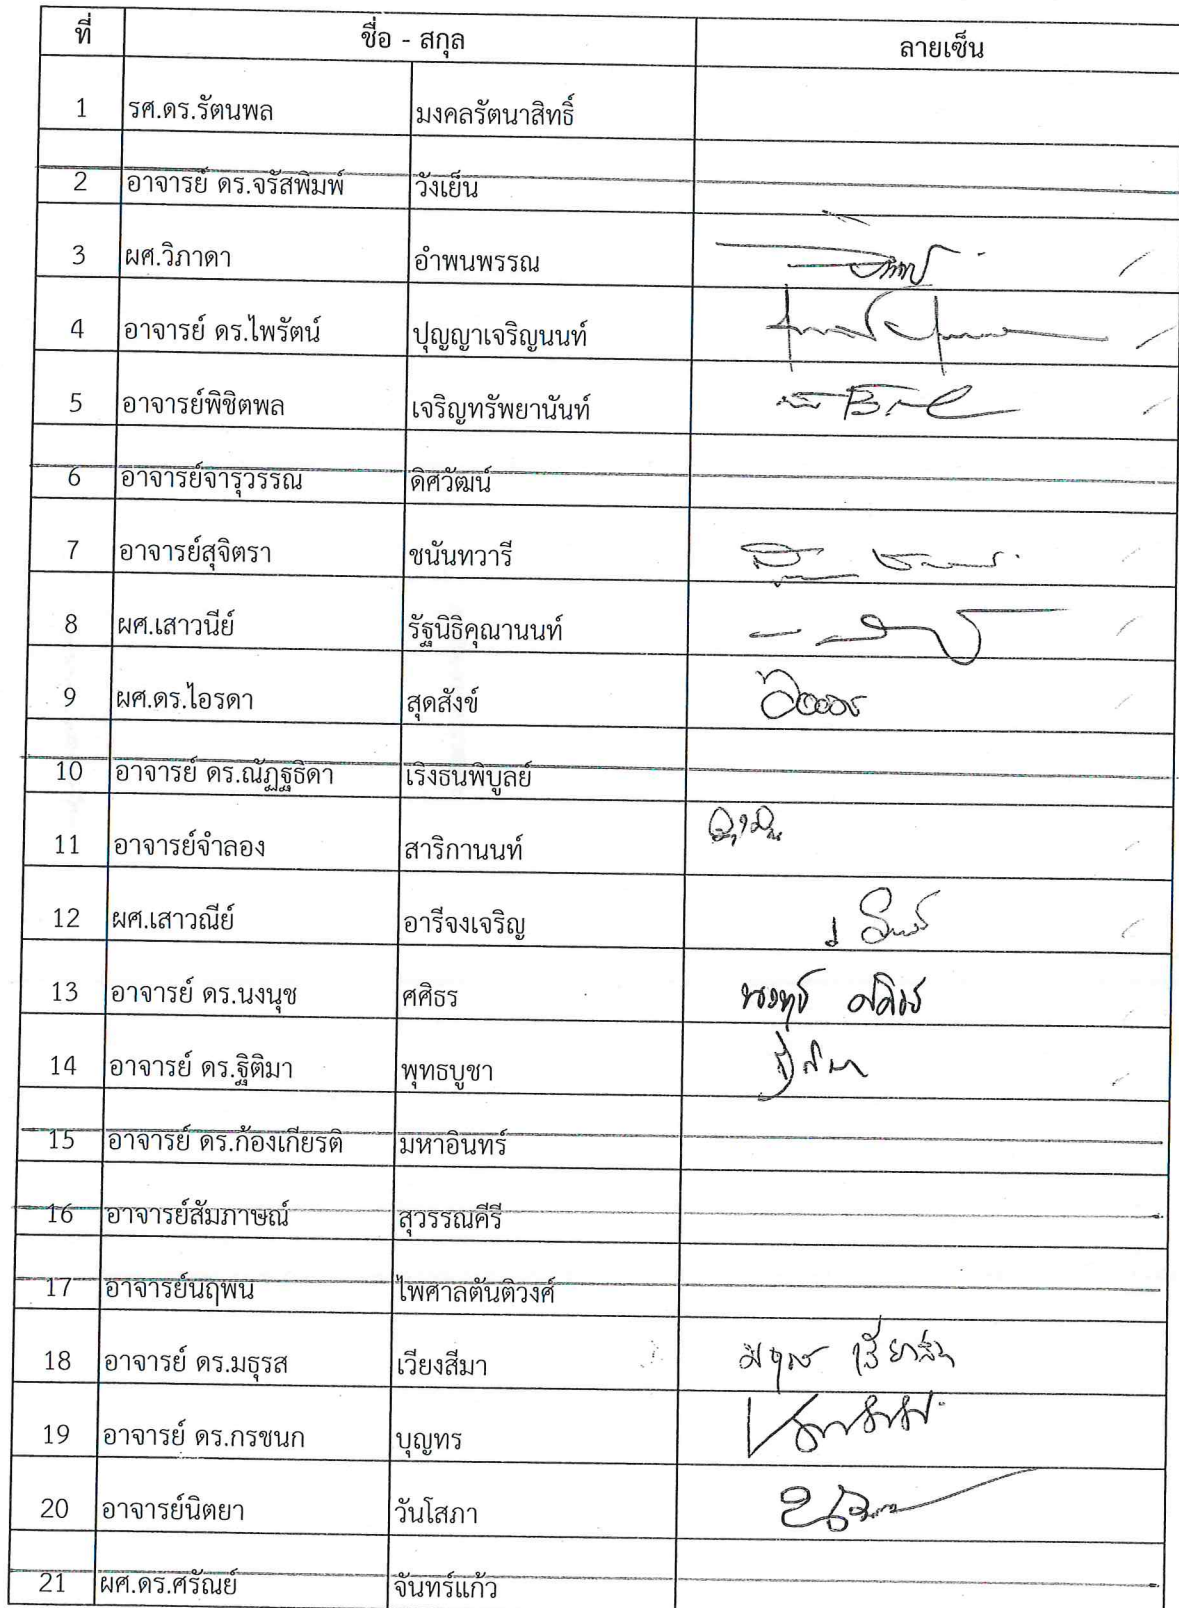 ที่ ชื่อ - สกุล ลายเซ็น
1 รศ.ดร.รัตนพล มงคลรัตนาสิทธิ์
2 อาจารย์ ดร.จรัสพิมพ์ วังเย็น
3 ผศ.วิภาดา อำพนพรรณ
4 อาจารย์ ดร.ไพรัตน์ ปุญญาเจริญนนท์
5 อาจารย์พิชิตพล เจริญทรัพยานันท์
6 อาจารย์จารุวรรณ ดิศวัฒน์
7 อาจารย์สุจิตรา ชนันทวารี
8 ผศ.เสาวนีย์ รัฐนิธิคุณานนท์
9 ผศ.ดร.ไอรดา สุดสังข์
10 อาจารย์ ดร.ณัฏฐธิดา เริงธนพิบูลย์
11 อาจารย์จำลอง สาริกานนท์
12 ผศ.เสาวณีย์ อารีจงเจริญ
13 อาจารย์ ดร.นงนุช ศศิธร นงนุช ศศิธร
14 อาจารย์ ดร.ฐิติมา พุทธบูชา ฐิติมา
15 อาจารย์ ดร.ก้องเกียรติ มหาอินทร์
16 อาจารย์สัมภาษณ์ สุวรรณคีรี
17 อาจารย์นฤพน ไพศาลตันติวงศ์
18 อาจารย์ ดร.มธุรส เวียงสีมา มธุรส เวียงสีมา
19 อาจารย์ ดร.กรชนก บุญทร
20 อาจารย์นิตยา วันโสภา
21 ผศ.ดร.ศรัณย์ จันทร์แก้ว